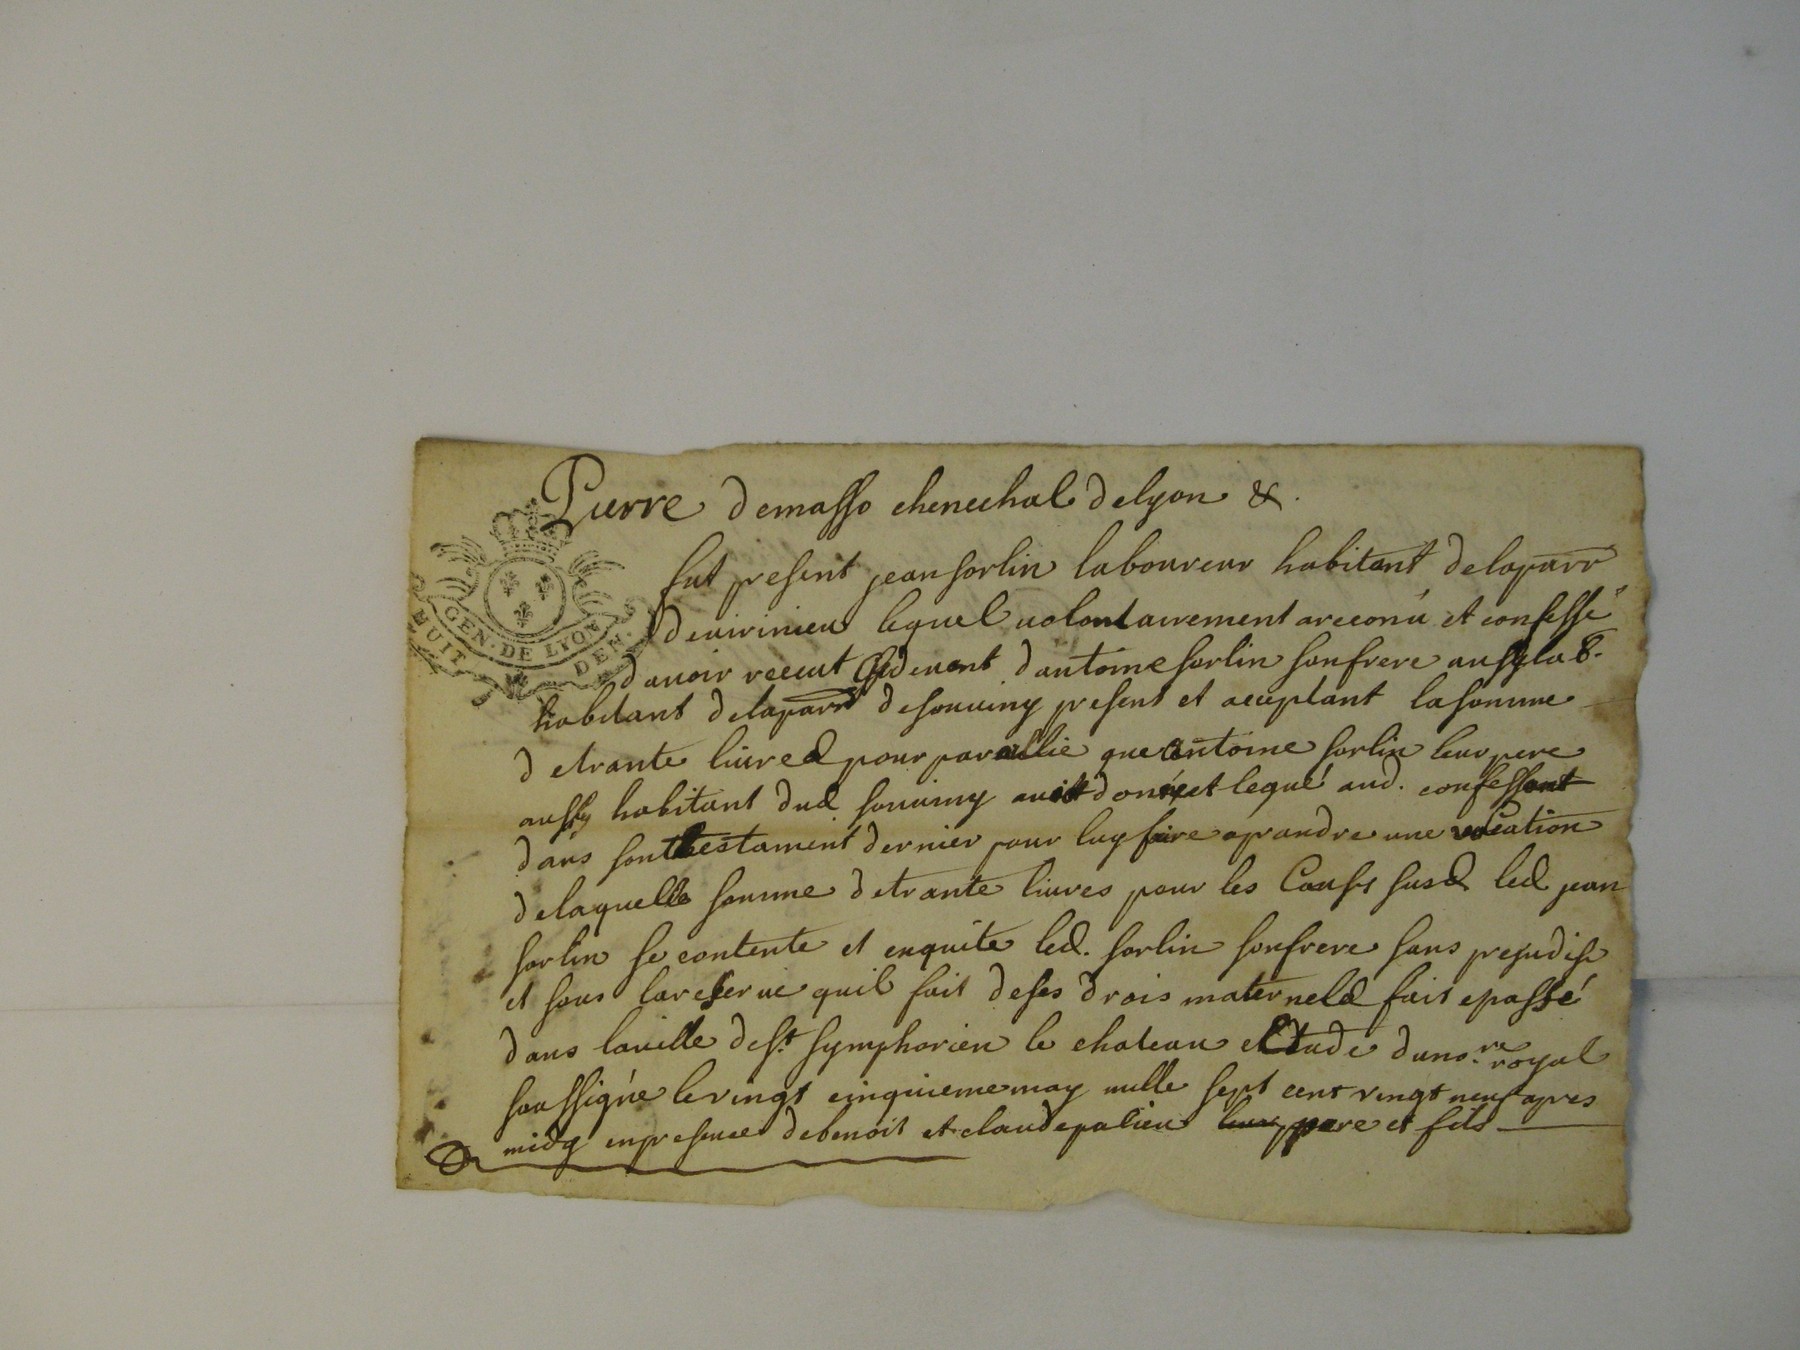 Pierre demasso chenechal delyon &.
GEN. DE LYON
HUIT DEN.
fut present jean sorlin laboureur habitant delaparr
devirinieu lequel volontairement areconu et confessé
davoir receut cydevant dantoine sorlin sonfrere aussy lab.
habitant delaparr desouviny present et aceptant lasomme
detrante livred pour parellie que antoine sorlin leur pere
aussy habitant dud souviny avoit doné et legué aud. confessant
dans son testament dernier pour luy faire aprandre une vocation
delaquelle somme detrante livres pour les Causes susd led jean
sorlin se contente et enquite led. sorlin sonfrere sans prejudise
et sous lareserve quil fait deses drois materneld fait epassé
dans laville de st symphorien le chateau etude duno.re royal
soussigné levingt cinquieme may mille sept cent vingt neuf apres
midy enpresence debenoit et claude palieu pere et fils